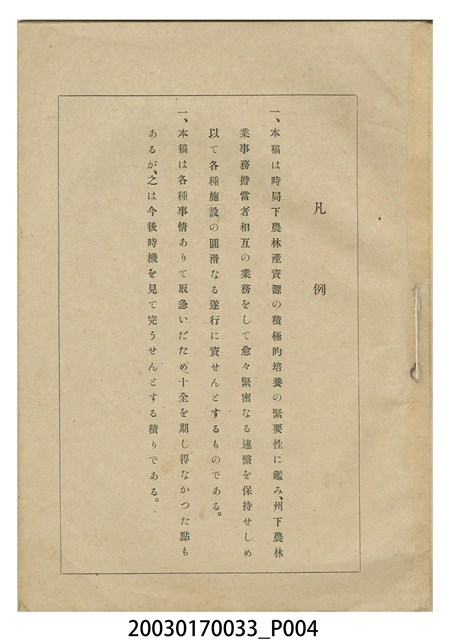 凡例
一、本稿は時局下農林產資源の積極的培養の緊要性に鑑み、州下農林
業事務擔當者相互の業務をして愈々緊密なる連繫を保持せしめ
以て各種施設の圓滑なる遂行に資せんとするものである。
一、本稿は各種事情ありて取急いだため十全を期し得なかつた點も
あるが、之は今後時機を見て完うせんとする積りである。
20030170033_P004